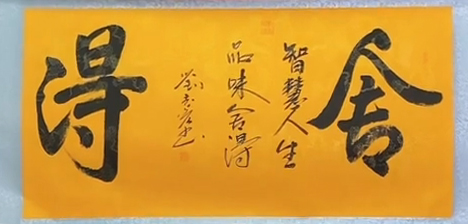 舍得
智慧人生
品味舍得